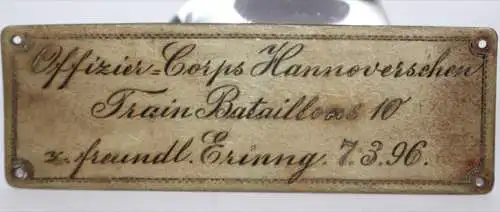 Offizier=Corps Hannoverschen
Train Bataillons 10
z. freundl. Erinng. 7.3.96.